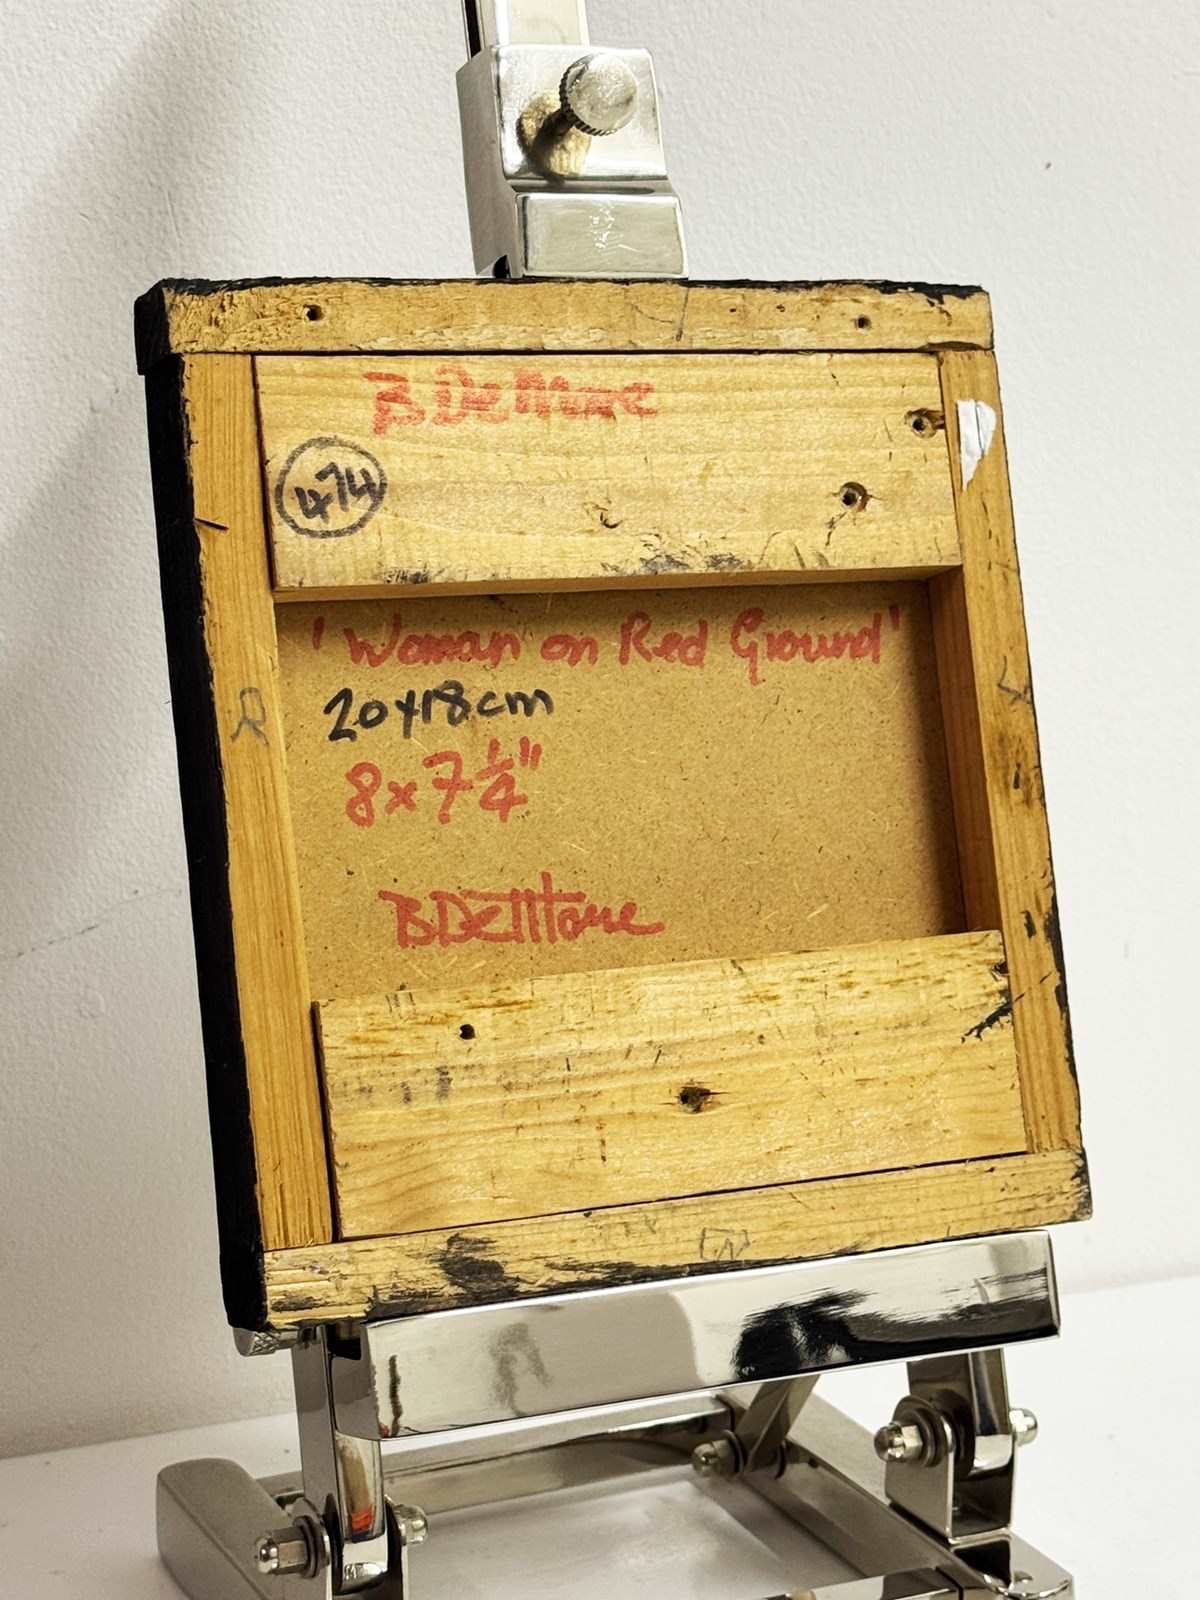 B DeMore
474
'Woman on Red Ground'
20x18cm
8x7 1/4"